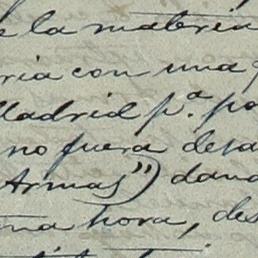 de la materia
ria con una
Madrid p.ª po
no fuera desa
Armas") dand
una hora, des